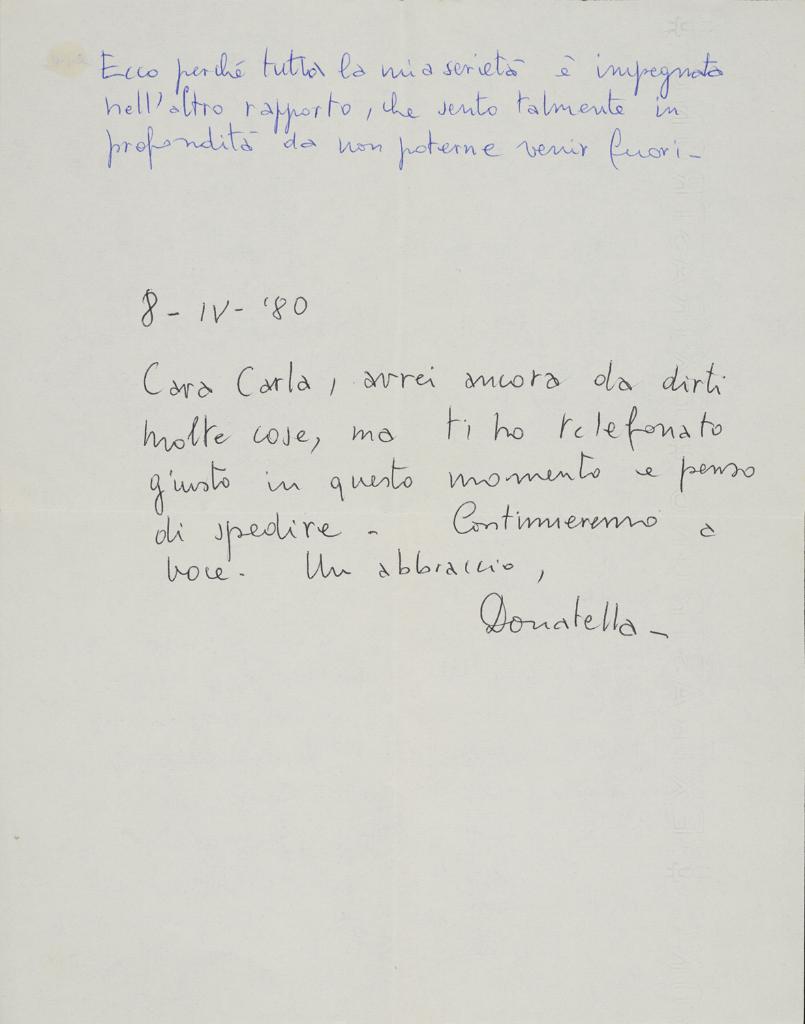 Ecco perché tutta la mia serietà è impegnata
nell'altro rapporto, che sento talmente in
profondità da non poterne venir fuori -
8 - IV - '80
Cara Carla, avrei ancora da dirti
molte cose, ma ti ho telefonato
giusto in questo momento e penso
di spedire - Continueremo a
voce. Un abbraccio,
Donatella -